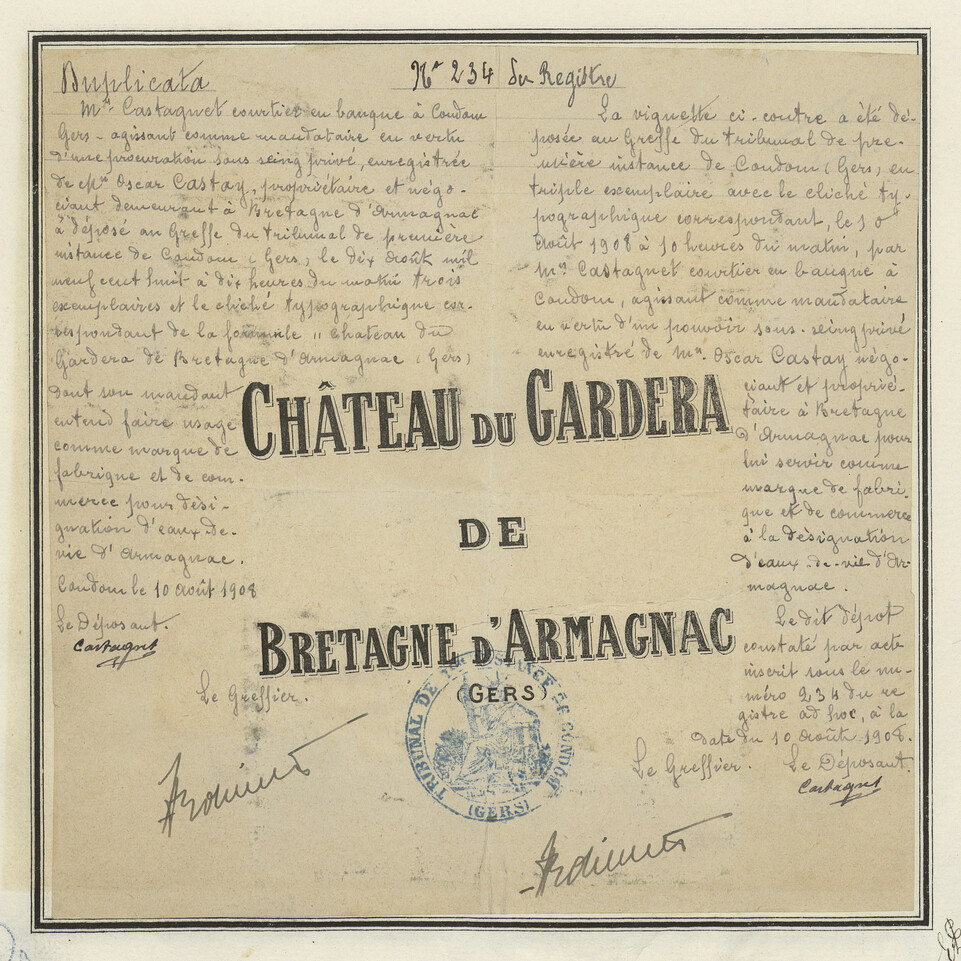 Duplicata
Mr. Castagnet courtier en banque à Condom
Gers - agissant comme mandataire en vertu
d'une procuration sous seing privé, enregistrée
de Mr Oscar Castay, propriétaire et négo-
ciant demeurant à Bretagne d'Armagnac
à déposé au Greffe du tribunal de première
instance de Condom (Gers) le dix Août mil
neuf cent huit à dix heures du matin trois
exemplaires et le cliché typographique cor-
respondant de la formule " Chateau du
Gardera de Bretagne d'Armagnac (Gers)
dont son mandant
entend faire usage
comme marque de
fabrique et de com-
merce pour dési-
gnation d'eaux-de-
vie d'Armagnac.
Condom le 10 août 1908
Le Déposant.
Castagnet
Le Greffier.
No 234 du Registre
La vignette ci-contre a été dé-
posée au Greffe du tribunal de pre-
mière instance de Condom (Gers) en
triple exemplaire avec le cliché ty-
pographique correspondant, le 10
Août 1908 à 10 heures du matin, par
Mr. Castagnet courtier en banque à
Condom, agissant comme mandataire
en vertu d'un pouvoir sous-seing privé
enregistré de Mr. Oscar Castay négo-
ciant et proprié-
taire à Bretagne
d'Armagnac pour
lui servir comme
marque de fabri-
que et de commerce
à la désignation
d'eaux-de-vie d'Ar-
magnac.
Le dit dépot
constaté par acte
inscrit sous le nu-
méro 234 du re
gistre ad hoc, à la
date du 10 Août 1908.
Le Greffier. Le Déposant.
Castagnet
CHÂTEAU DU GARDERA
DE
BRETAGNE D'ARMAGNAC
(GERS)
TRIBUNAL DE 1ère INSTANCE DE CONDOM
(GERS)